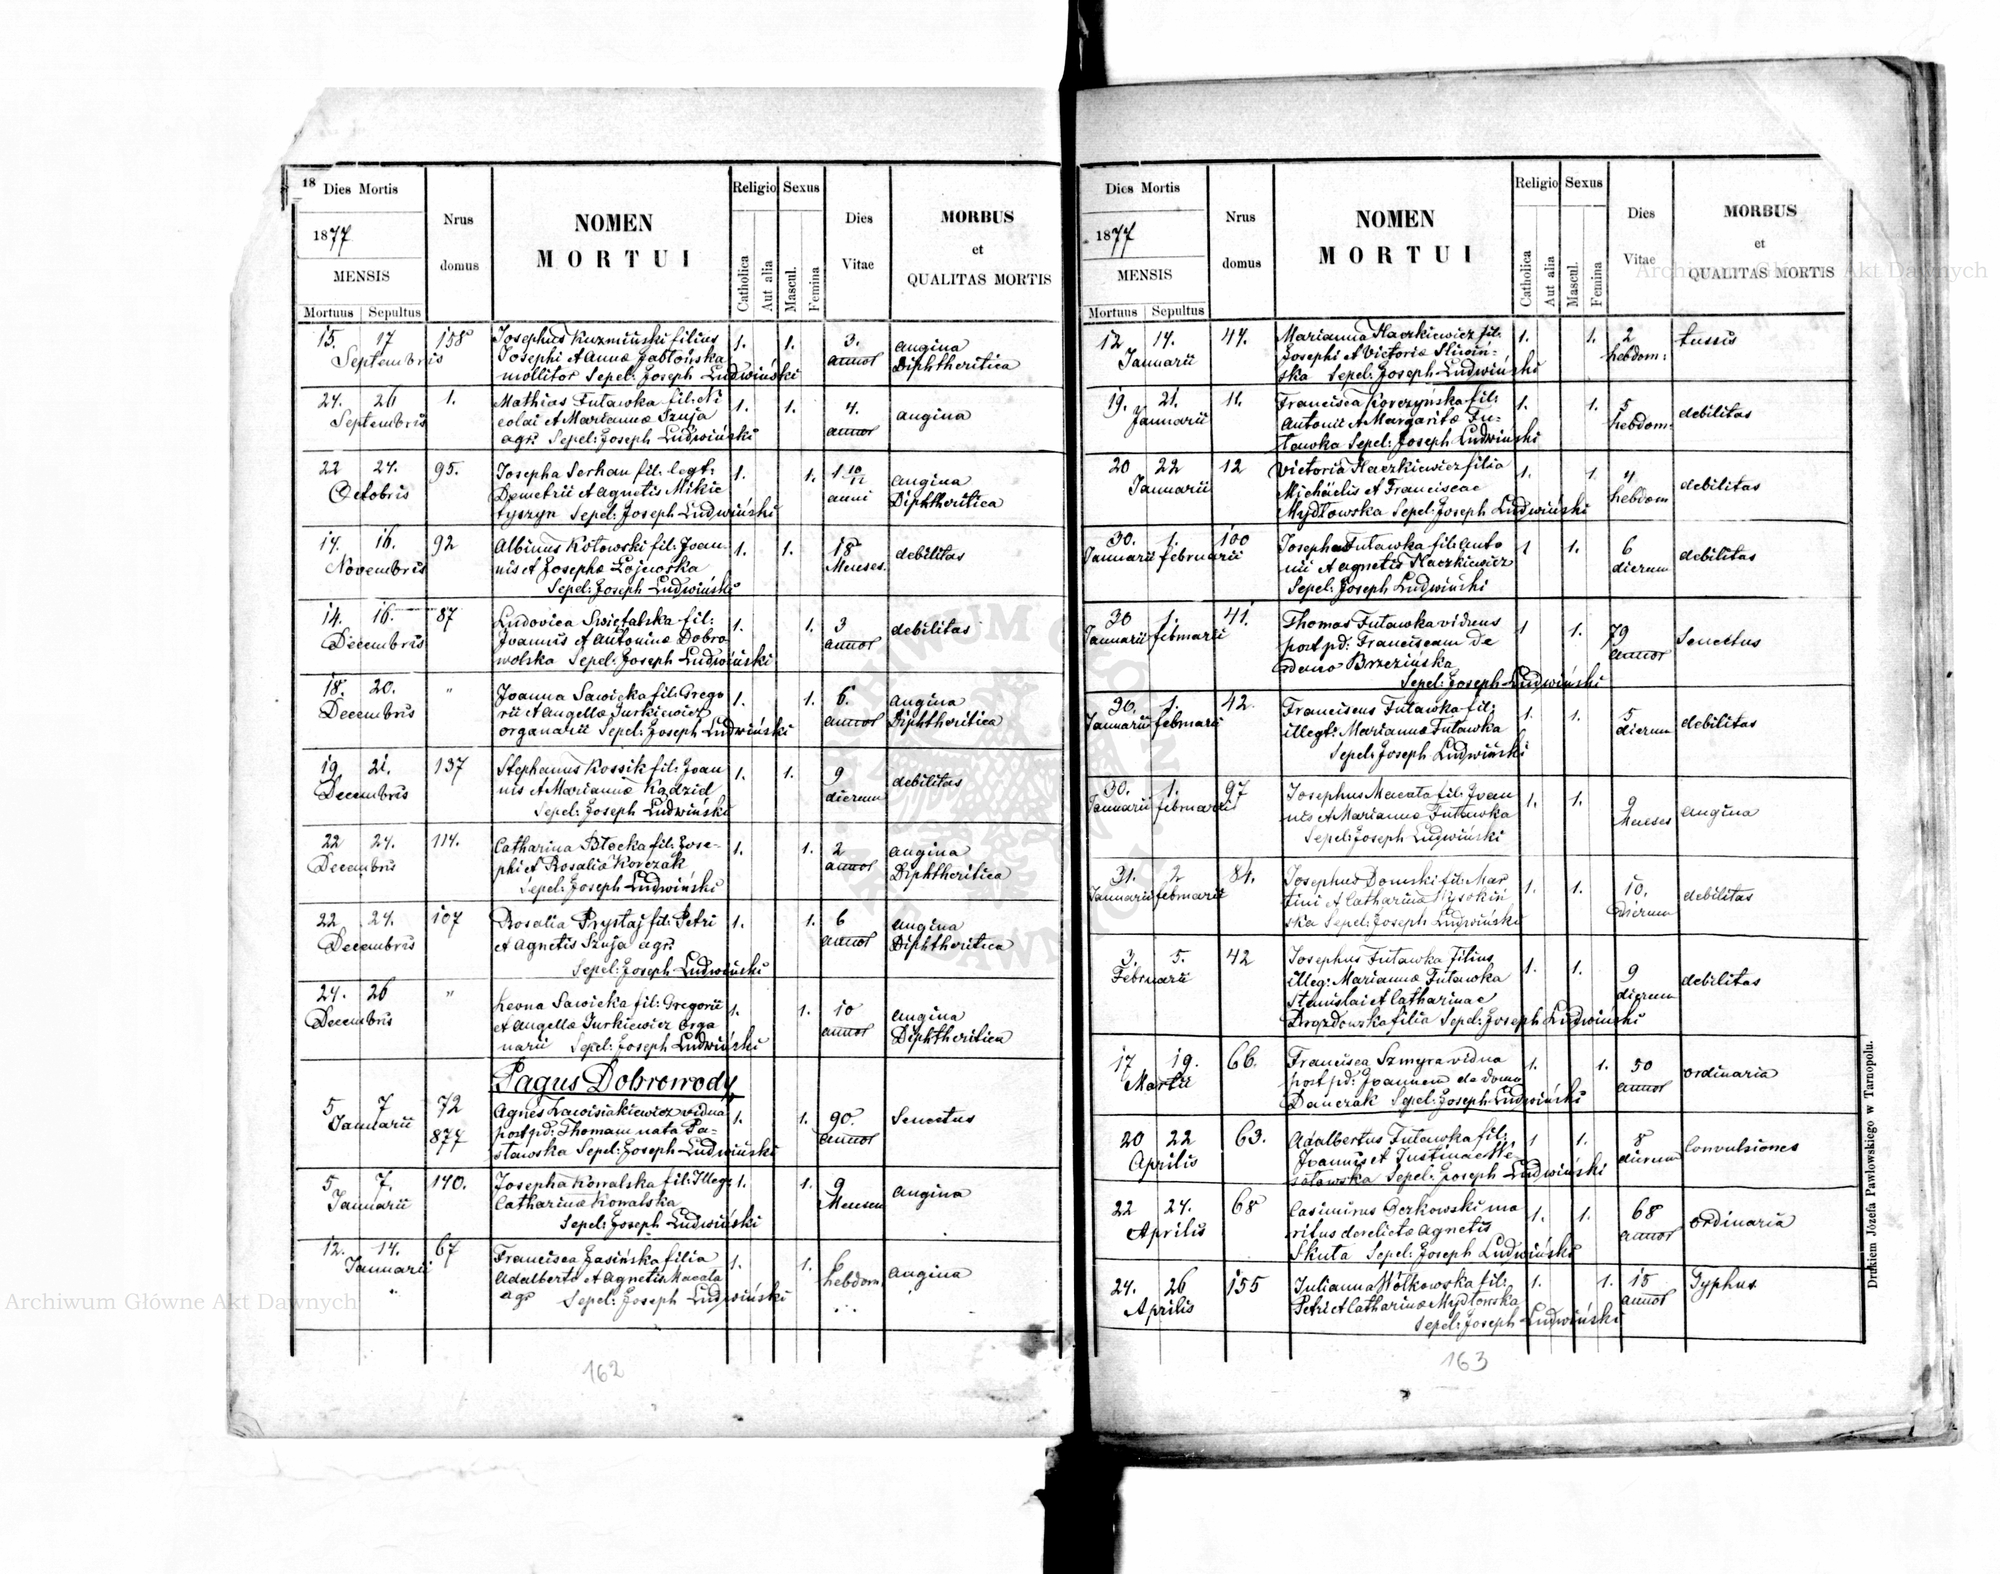 18 Dies Mortis
1877
MENSIS
Mortuus Sepultus
Nrus domus
NOMEN
MORTUI
Religio
Catholica
Aut alia
Sexus
Mascul.
Femina
Dies
Vitae
MORBUS
et
QUALITAS MORTIS
15. 17 158 Josephus Kuzmiński filius 1. 1. 3. angina
Septembris Josephi et Annæ Jabłońska annor Diphtheritica
mollitor Sepel: Joseph Ludwiński
24. 26 1. Mathias Futawka fil: Ni 1. 1. 4. angina
Septembris colai et Mariannæ Szuja annor
agr: Sepel: Joseph Ludwiński
22 24. 95. Josepha Serhan fil: legt: 1. 1. 1 10/12 angina
Octobris Demetrii et Agnetis Mikie anni Diphtheritica
tyszyn Sepel: Joseph Ludwiński
14. 16. 92 Albinus Kotowski fil: Joan 1. 1. 18 debilitas
Novembris nis et Josephæ Łojewska Menses.
Sepel: Joseph Ludwiński
14. 16. 87 Ludovica Swiętalska fil: 1. 1. 3 debilitas
Decembris Joannis et Antoninæ Dobro annor
wolska Sepel: Joseph Ludwiński
18. 20. " Joanna Sawicka fil: Grego 1. 1. 6. angina
Decembris rii et Angellæ Jurkiewicz annor Diphtheritica
organarii Sepel: Joseph Ludwiński
19 21. 137 Stephanus Kossik fil: Joan 1. 1. 9 debilitas
Decembris nis et Mariannæ Kądziel dierum
Sepel: Joseph Ludwiński
22 24. 114. Catharina Błocka fil: Jose- 1. 1. 2 angina
Decembris phi et Rosaliæ Korczak annor Diphtheritica
Sepel: Joseph Ludwiński
22 24. 107 Rosalia Prystaj fil: Petri 1. 1. 6 angina
Decembris et Agnetis Szuja agr: annor Diphtheritica
Sepel: Joseph Ludwiński
24. 26 " Leona Sawicka fil: Gregorii 1. 1. 10 angina
Decembris et Angellæ Jurkiewicz orga annor Diphtheritica
narii Sepel: Joseph Ludwiński
Pagus Dobrowody
5 7 72 Agnes vidua 1. 1. 90. Senectus
Januarii 877 post pd: Thomam nata annor
Sepel: Joseph Ludwiński
5 7. 140. Josepha Kowalska fil: Illeg: 1. 1. 9 angina
Januarii Catharinæ Kowalska Mensen
Sepel: Joseph Ludwiński
12. 14. 67 Francisca Jasińska filia 1. 1. angina
Januarii Adalberti et Agnetis Macała hebdom
agr Sepel: Joseph Ludwiński
162
Dies Mortis
1877
MENSIS
Mortuus Sepultus
Nrus
domus
NOMEN
MORTUI
Religio
Catholica
Aut alia
Sexus
Mascul.
Femina
Dies
Vitae
MORBUS
et
QUALITAS MORTIS
12 14. 44. Marianna Haczkiewicz fil: 1. 1. 2 tussis
Januarii Josephi et Victoriæ Sliwiń- hebdom:
ska Sepel: Joseph Ludwiński
19. 21. 11. Francisca Korczyńska fil: 1. 1. 5 debilitas
Januarii Antonii et Margaritæ Fu- hebdom:
tawka Sepel: Joseph Ludwiński
20 22 12 Victoria Haczkiewicz filia 1. 1. 4 debilitas
Januarii Michaelis et Franciscae hebdom
Mydłowska Sepel: Joseph Ludwiński
30. 1. 100 Josephus Futawka fil: Anto 1 1. 6 debilitas
Januarii februarii nii et Agnetis Haczkiewicz dierum
Sepel: Joseph Ludwiński
30 1. 41. Thomas Futawka viduus 1 1. 79 Senectus
Januarii februarii post pd: Franciscam De annor
domo Brzezińska
Sepel: Joseph Ludwiński
30. 1. 42. Franciscus Futawka fil: 1. 1. 5 debilitas
Januarii februarii illegt: Mariannæ Futawka dierum
Sepel: Joseph Ludwiński
30. 1. 97 Josephus Macała fil: Joan 1. 1. 9 angina
Januarii februarii nis et Mariannæ Futawka Menses
Sepel: Joseph Ludwiński
31. 2 84. Josephus Domski fil: Mar 1. 1. 10. debilitas
Januarii februarii tini et Catharinæ Wysokiń dierum
ska Sepel: Joseph Ludwiński
3. 5. 42 Josephus Futawka filius 1. 1. 9 debilitas
Februarii illeg: Mariannæ Futawka dierum
Stanislai et Catharinae
Drozdowska filia Sepel: Joseph Ludwiński
17 19. 66. Francisca Szmyra vidua 1. 1. 50 ordinaria
Martii post pd: Joannem de domo annor
Danczak Sepel: Joseph Ludwiński
20 22 63. Adalbertus Futawka fil: 1 1. 8 Convulsiones
Aprilis Joannis et Justinae We- dierum
sołowska Sepel: Joseph Ludwiński
22 24. 68 Casimirus Berkowski ma 1. 1. 68 ordinaria
Aprilis ritus derelictæ Agnetis annor
Skuta Sepel: Joseph Ludwiński
24. 26 155 Julianna Wółkowska fil: 1. 1. 15 Typhus
Aprilis Petri et Catharinæ Mydłowska annor
Sepel: Joseph Ludwiński
163
Drukiem Józefa Pawłowskiego w Tarnopolu.
Archiwum Główne Akt Dawnych
Archiwum Główne Akt Dawnych
ARCHIWUM GŁÓWNE AKT DAWNYCH